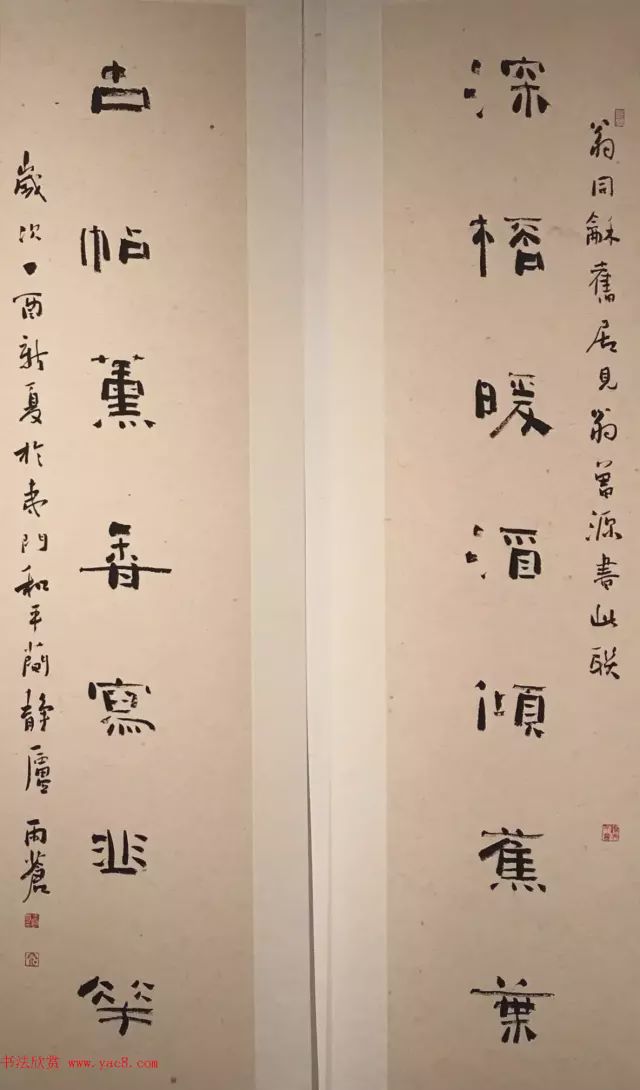 翁同龢舊居見翁曾源書此联
深榕暖酒傾蕉葉
古帖薰香寫韭華
歲次丁酉新夏於門和平簡靜廬雨蒼
书法欣赏 www.yac8.com